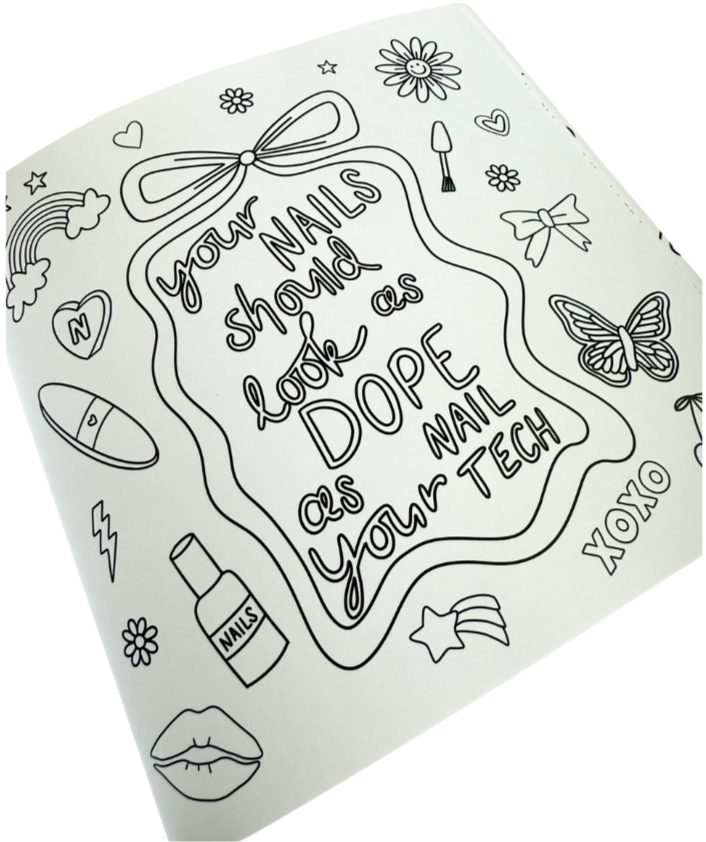 your NAILS
should
look as
DOPE
as NAIL
your TECH
N
NAILS
XOXO